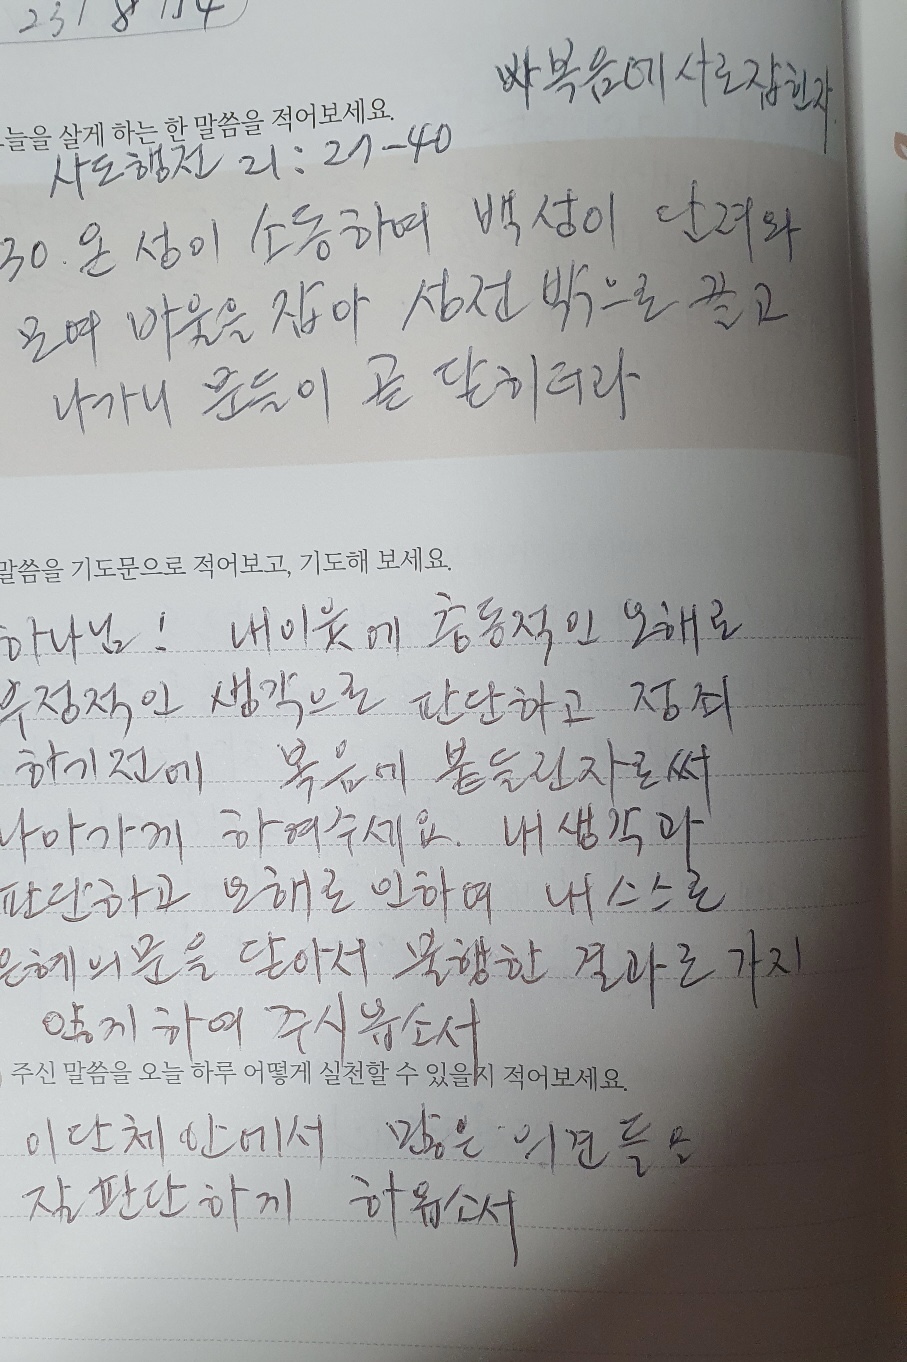 23 / 8 / 14
복음에 사로잡힌자.
늘을 살게 하는 한 말씀을 적어보세요.
사도행전 21 : 27-40
30. 온 성이 소동하며 백성이 달려와
모여 바울을 잡아 성전 밖으로 끌고
나가니 문들이 곧 닫히더라
말씀을 기도문으로 적어보고, 기도해 보세요.
하나님! 내이웃에 충동적인 오해로
부정적인 생각으로 판단하고 정죄
하기전에 복음에 붙들린자로써
나아가게 하여주세요. 내생각과
판단하고 오해로 인하여 내 스스로
은혜의문을 닫아서 불행한 결과로 가지
않게하여 주시옵소서
주신 말씀을 오늘 하루 어떻게 실천할 수 있을지 적어보세요.
이단체안에서 많은 의견들을
잘판단하게 하옵소서